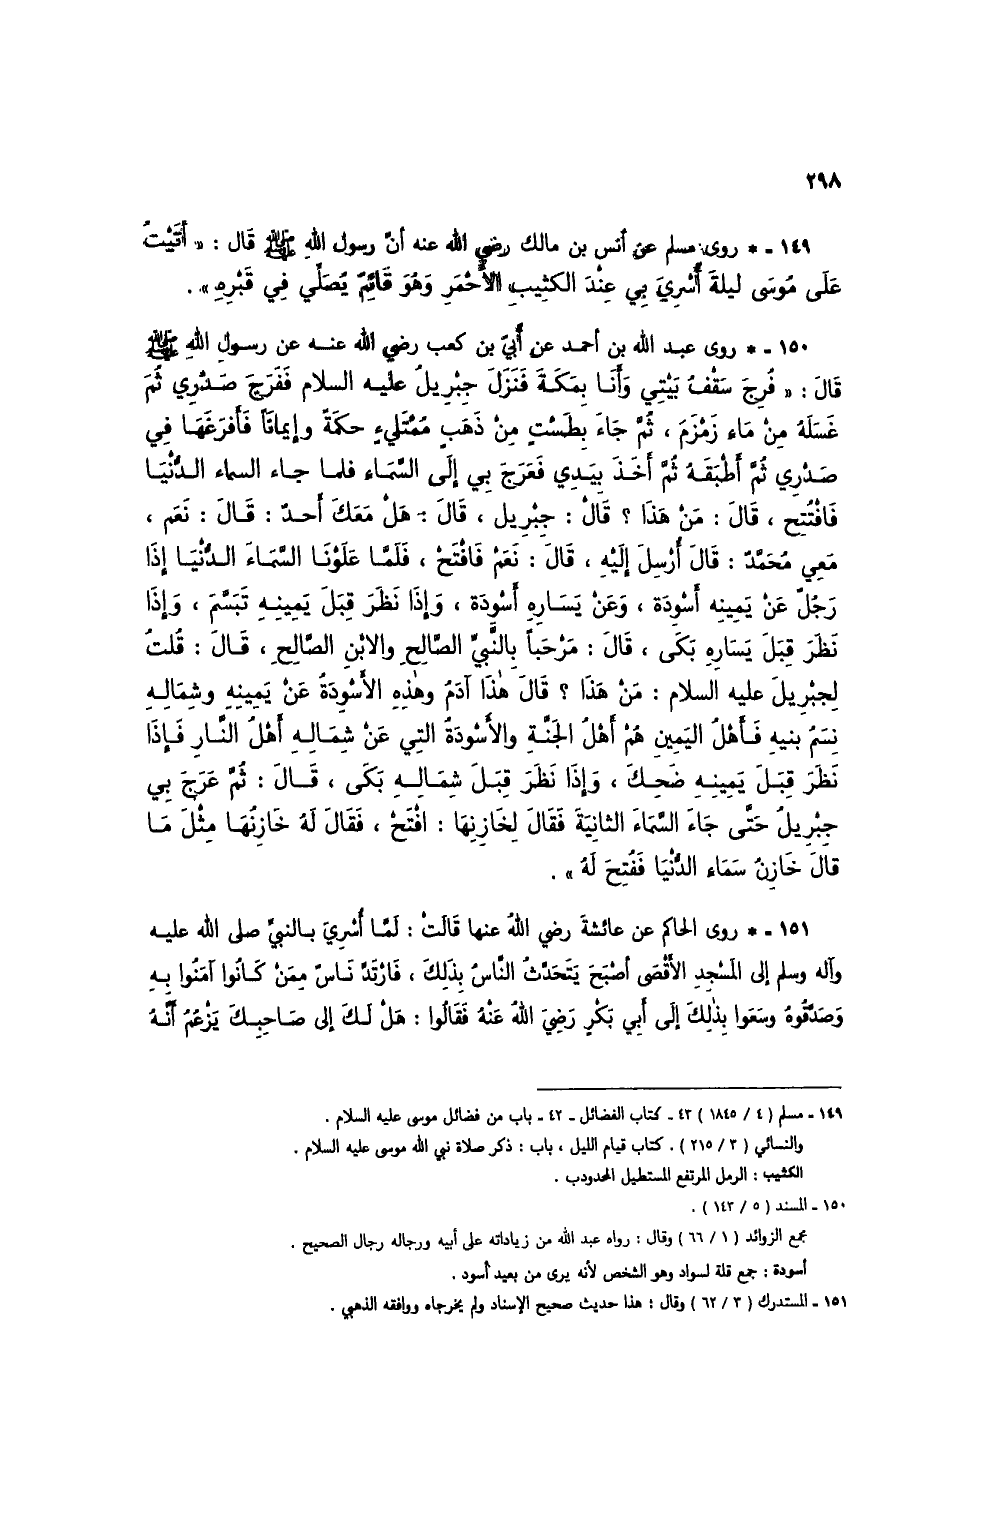 ٢٩٨
١٤٩ - * روى مسلم عن أنس بن مالك رضي الله عنه أنّ رسول اللهِ ﷺ قَال : « أَتَيْتُ
عَلَى مُوسَى ليلةَ أُسْرِيَ بِي عِنْدَ الكثِيبِ الأَحْمَرِ وَهُوَ قَائِمٌ يُصَلِّي فِي قَبْرِهِ » .
١٥٠ - * روى عبد الله بن أحمد عن أُبَيّ بن كعب رضي الله عنه عن رسول اللهِ ﷺ
قَالَ : « فُرِجَ سَقْفُ بَيْتِي وَأَنَا بِمَكَةَ فَنَزَلَ جِبْرِيلُ عليه السلام فَفَرَجَ صَدْرِي ثُمَّ
غَسَلَهُ مِنْ مَاء زَمْزَمَ ، ثُمَّ جَاءَ بِطَسْتٍ مِنْ ذَهَبٍ مُمْتَلِيءٍ حكمَةً وإيمانَاً فَأفرَغَهَا فِي
صَدْرِي ثُمَّ أَطْبَقَهُ ثُمَّ أَخَذَ بِيَدِي فَعَرَجَ بِي إِلَى السَّمَاءِ فلما جاء السماء الدُّنْيَا
فَافْتُتِح ، قَالَ : مَنْ هَذَا ؟ قَالْ : جِبْرِيل ، قَالَ : هَلْ مَعَكَ أَحدٌ : قَالَ : نَعَم ،
مَعِي مُحَمَّدٌ : قَالَ أُرْسِلَ إِلَيْهِ ، قَالَ : نَعَمْ فَافْتَحْ ، فَلَمَّا عَلَوْنَا السَّمَاءَ الدُّنْيَا إِذَا
رَجُلٌ عَنْ يَمِينِه أَسْوِدَة ، وَعَنْ يَسَارِهِ أَسْوِدَة ، وَإِذَا نَظَرَ قِبَلَ يَمِينِهِ تَبَسَّمَ ، وَإِذَا
نَظَرَ قِبَلَ يَسَارِهِ بَكَى ، قَالَ : مَرْحَباً بِالنَّبِيِّ الصَّالِحِ والابْنِ الصَّالِحِ ، قَالَ : قُلتُ
لِجِبْرِيلَ عليه السلام : مَنْ هَذَا ؟ قَالَ هٰذَا آدَمُ وهٰذِهِ الأَسْوِدَةُ عَنْ يَمِينِهِ وشِمَالِهِ
نِسَمُ بنيهِ فَأَهْلُ اليَمِينِ هُمْ أَهْلُ الجَنَّةِ والأَسْوِدَةُ التِي عَنْ شِمَالِهِ أَهْلُ النَّارِ فَإِذَا
نَظَرَ قِبَلَ يَمِينِهِ ضَحِكَ ، وَإِذَا نَظَرَ قِبَلَ شِمَالِهِ بَكَى ، قَالَ : ثُمَّ عَرَجَ بِي
جِبْرِيلُ حَتَّى جَاءَ السَّمَاءَ الثانِيَةَ فَقَالَ لِخَازِنِهَا : افْتَحْ ، فَقَالَ لَهُ خَازِنُهَا مِثْلَ مَا
قالَ خَازِنُ سَمَاء الدُّنْيَا فَفُتِحَ لَهُ » .
١٥١ - * روى الحاكم عن عائشةَ رضي اللهُ عنها قَالَتْ : لَمَّا أُسْرِيَ بالنبيِّ صلى الله عليه
وآله وسلم إلى المَسْجِدِ الأقْصَى أصْبَحَ يَتَحَدَّثُ النَّاسُ بِذَلِكَ ، فَارْتَدَّ نَاسٌ مِمَنْ كَانُوا آمَنُوا بِهِ
وَصَدَّقُوهُ وسَعَوا بِذٰلِكَ إِلَى أَبِي بَكْرٍ رَضِيَ اللهُ عَنْهُ فَقَالُوا : هَلْ لَكَ إلى صَاحِبِكَ يَزْعُمُ أَنَّهُ
١٤٩ - مسلم ( ٤ / ١٨٤٥ ) ٤٣ - كتاب الفضائل - ٤٢ - باب من فضائل موسى عليه السلام .
والنسائي ( ٣ / ٢١٥ ) . كتاب قيام الليل ، باب : ذكر صلاة نبي الله موسى عليه السلام .
الكثيب : الرمل المرتفع المستطيل المحدودب .
١٥٠ - المسند ( ٥ / ١٤٣ ) .
مجمع الزوائد ( ١ / ٦٦ ) وقال : رواه عبد الله من زياداته على أبيه ورجاله رجال الصحيح .
أسودة : جمع قلة لسواد وهو الشخص لأنه يرى من بعيد أسود .
١٥١ - المستدرك ( ٣ / ٦٢ ) وقال : هذا حديث صحيح الإسناد ولم يخرجاه ووافقه الذهبي .